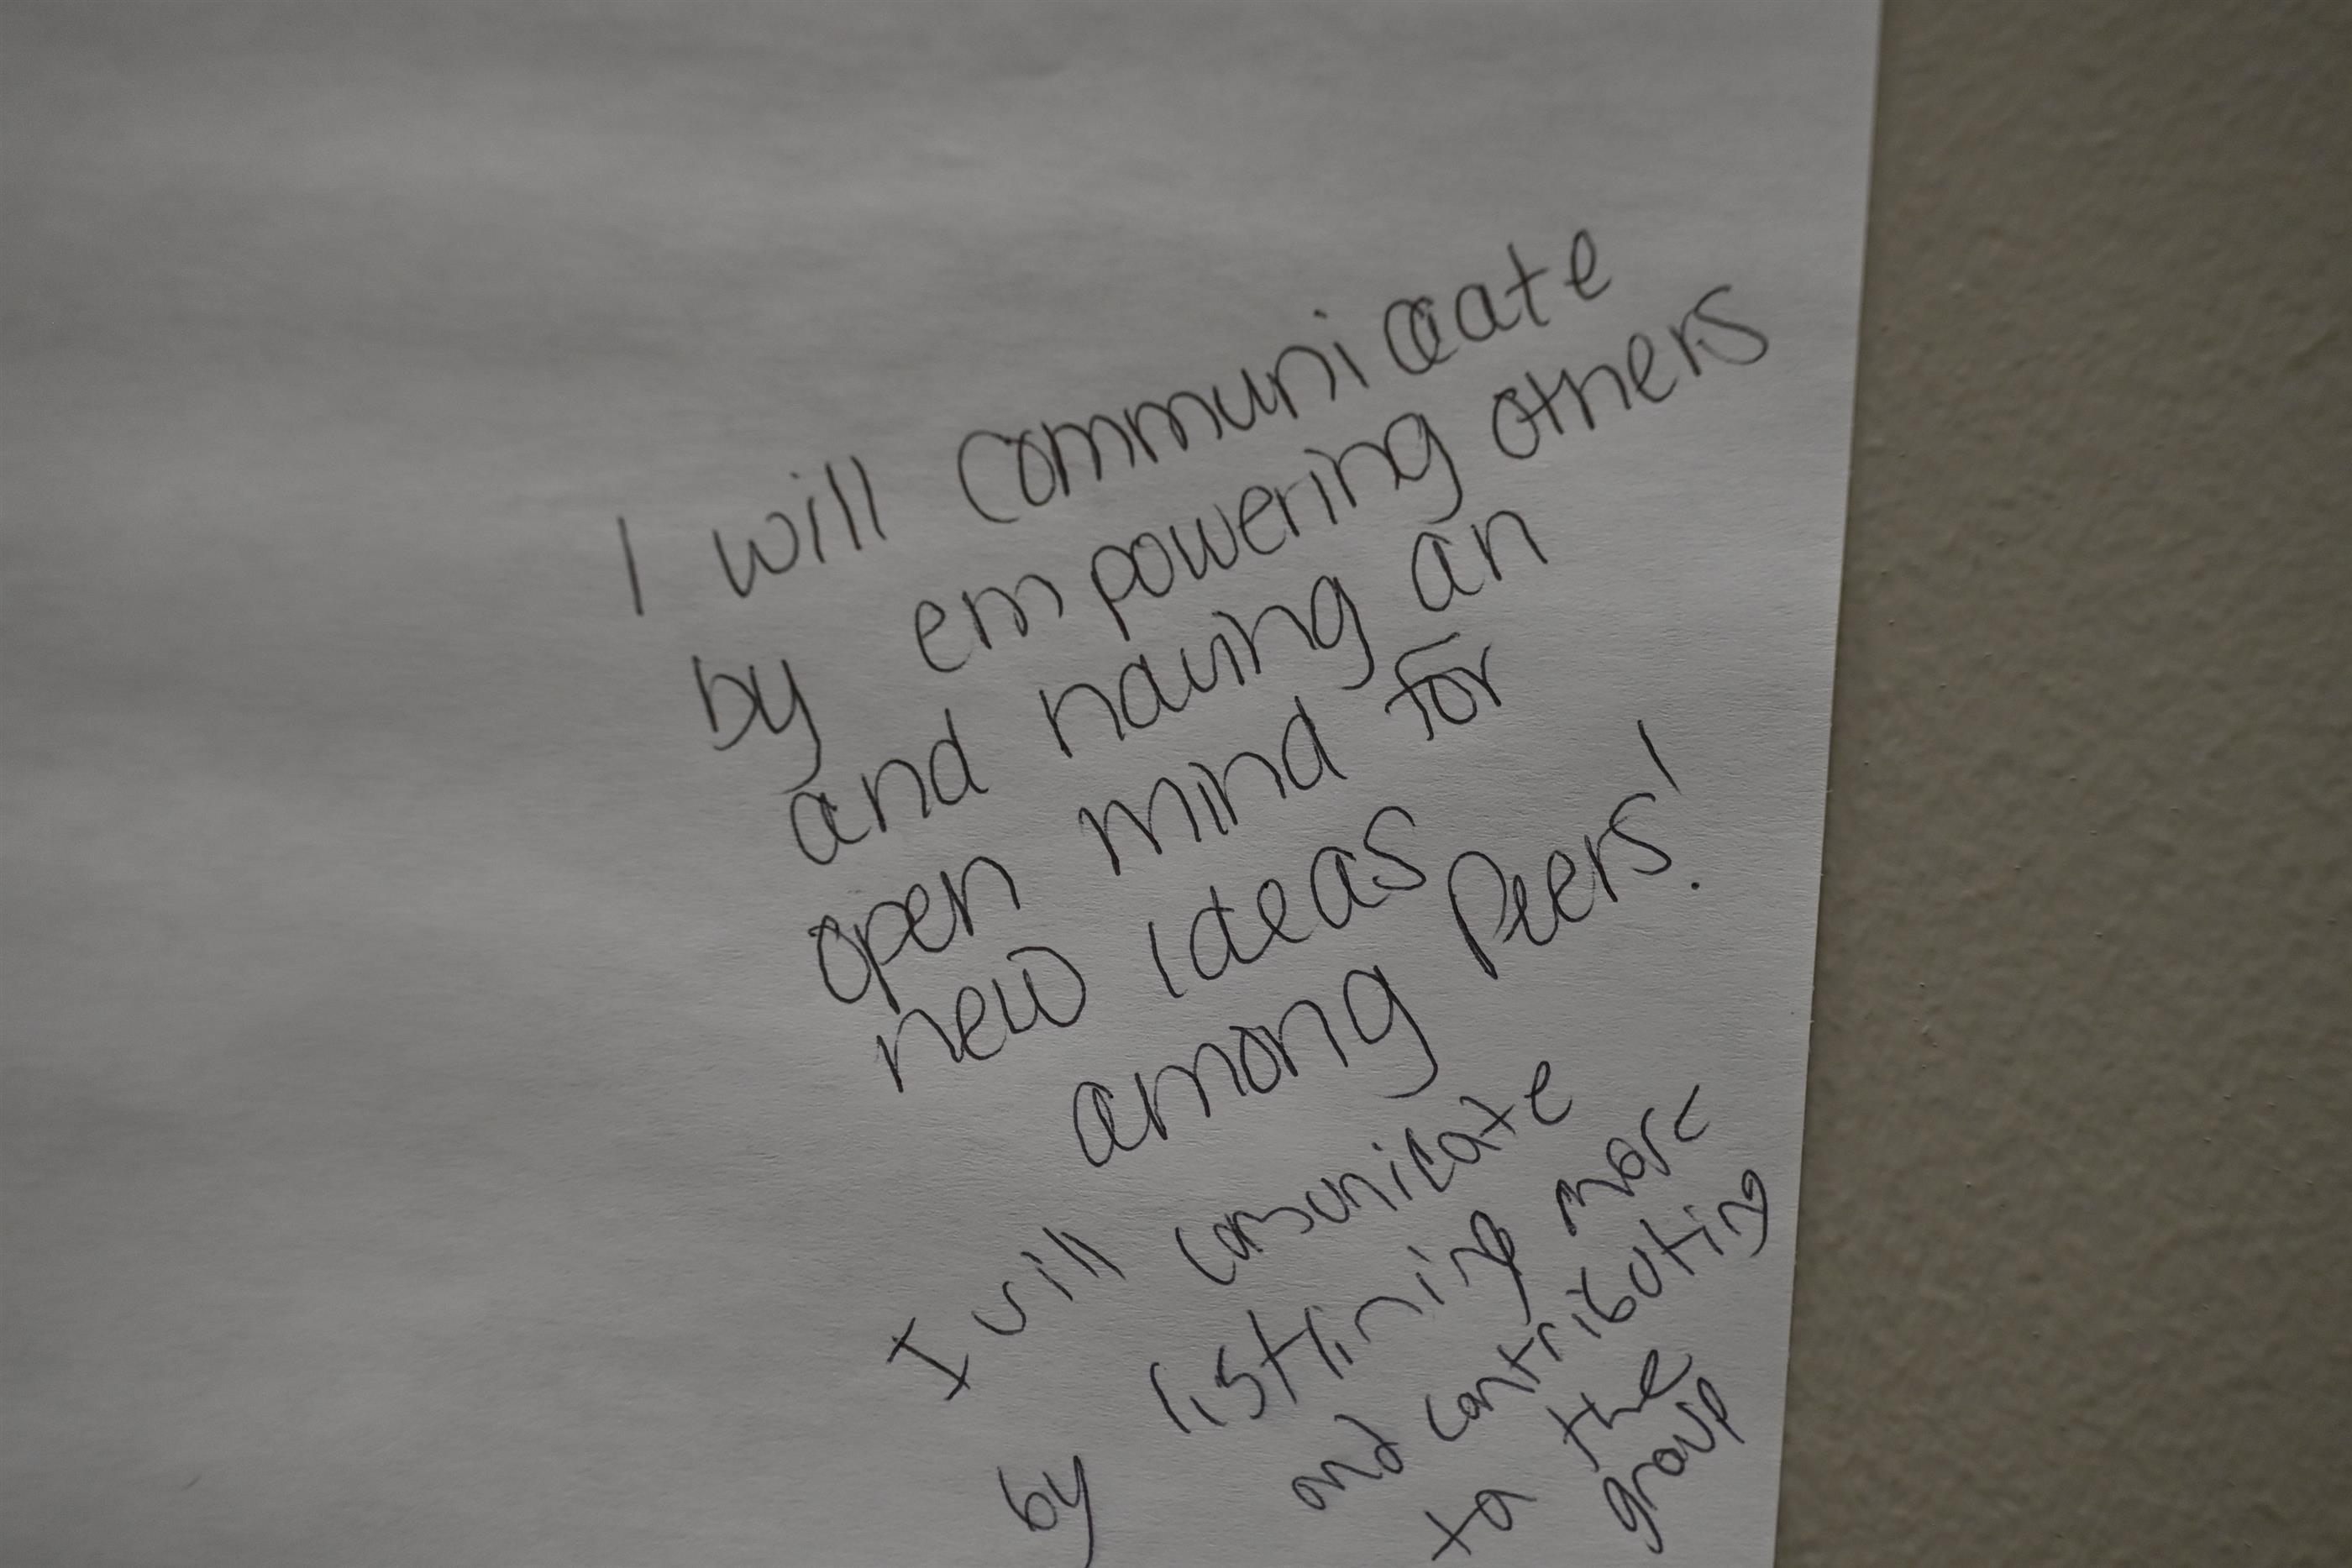 I will communicate
by empowering others
and having an
open mind for
new ideas
among Peers!
I will comunicate
by listining more
and contributing
to the
group